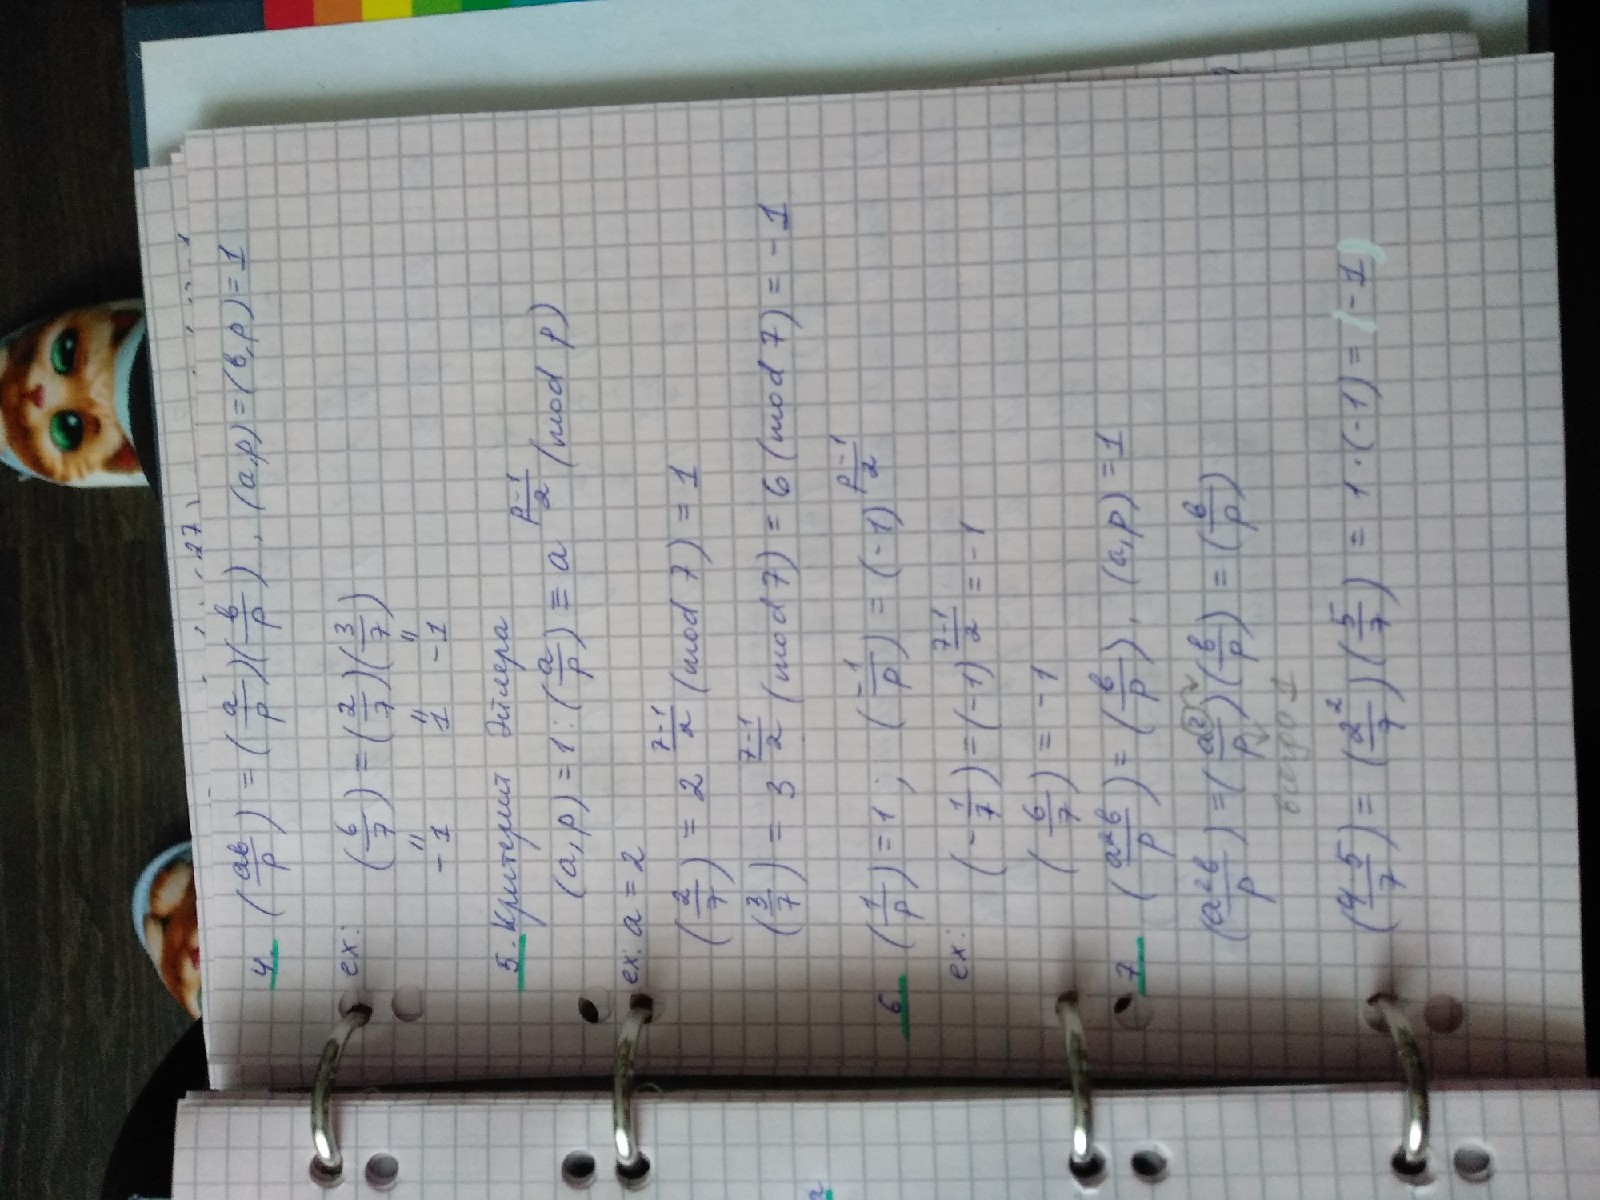 4. (ав/p) = (a/p)(в/p), (a,p)=(в,p)=1
ex: (6/7) = (2/7)(3/7)
" " "
-1 1 -1
5. Критерий Эйлера
(a,p)=1: (a/p) ≡ a^((p-1)/2) (mod p)
ex: a = 2
(2/7) = 2^((7-1)/2) (mod 7) = 1
(3/7) = 3^((7-1)/2) (mod 7) = 6 (mod 7) = -1
6. (1/p) = 1; (-1/p) = (-1)^((p-1)/2)
ex: (-1/7) = (-1)^((7-1)/2) = -1
(6/7) = -1
7 (a²в/p) = (в/p), (a,p) = 1
(a²в/p) = (a²/p)(в/p) = (в/p)
всегда 1
(4·5/7) = (2²/7)(5/7) = 1·(-1) = (-1)